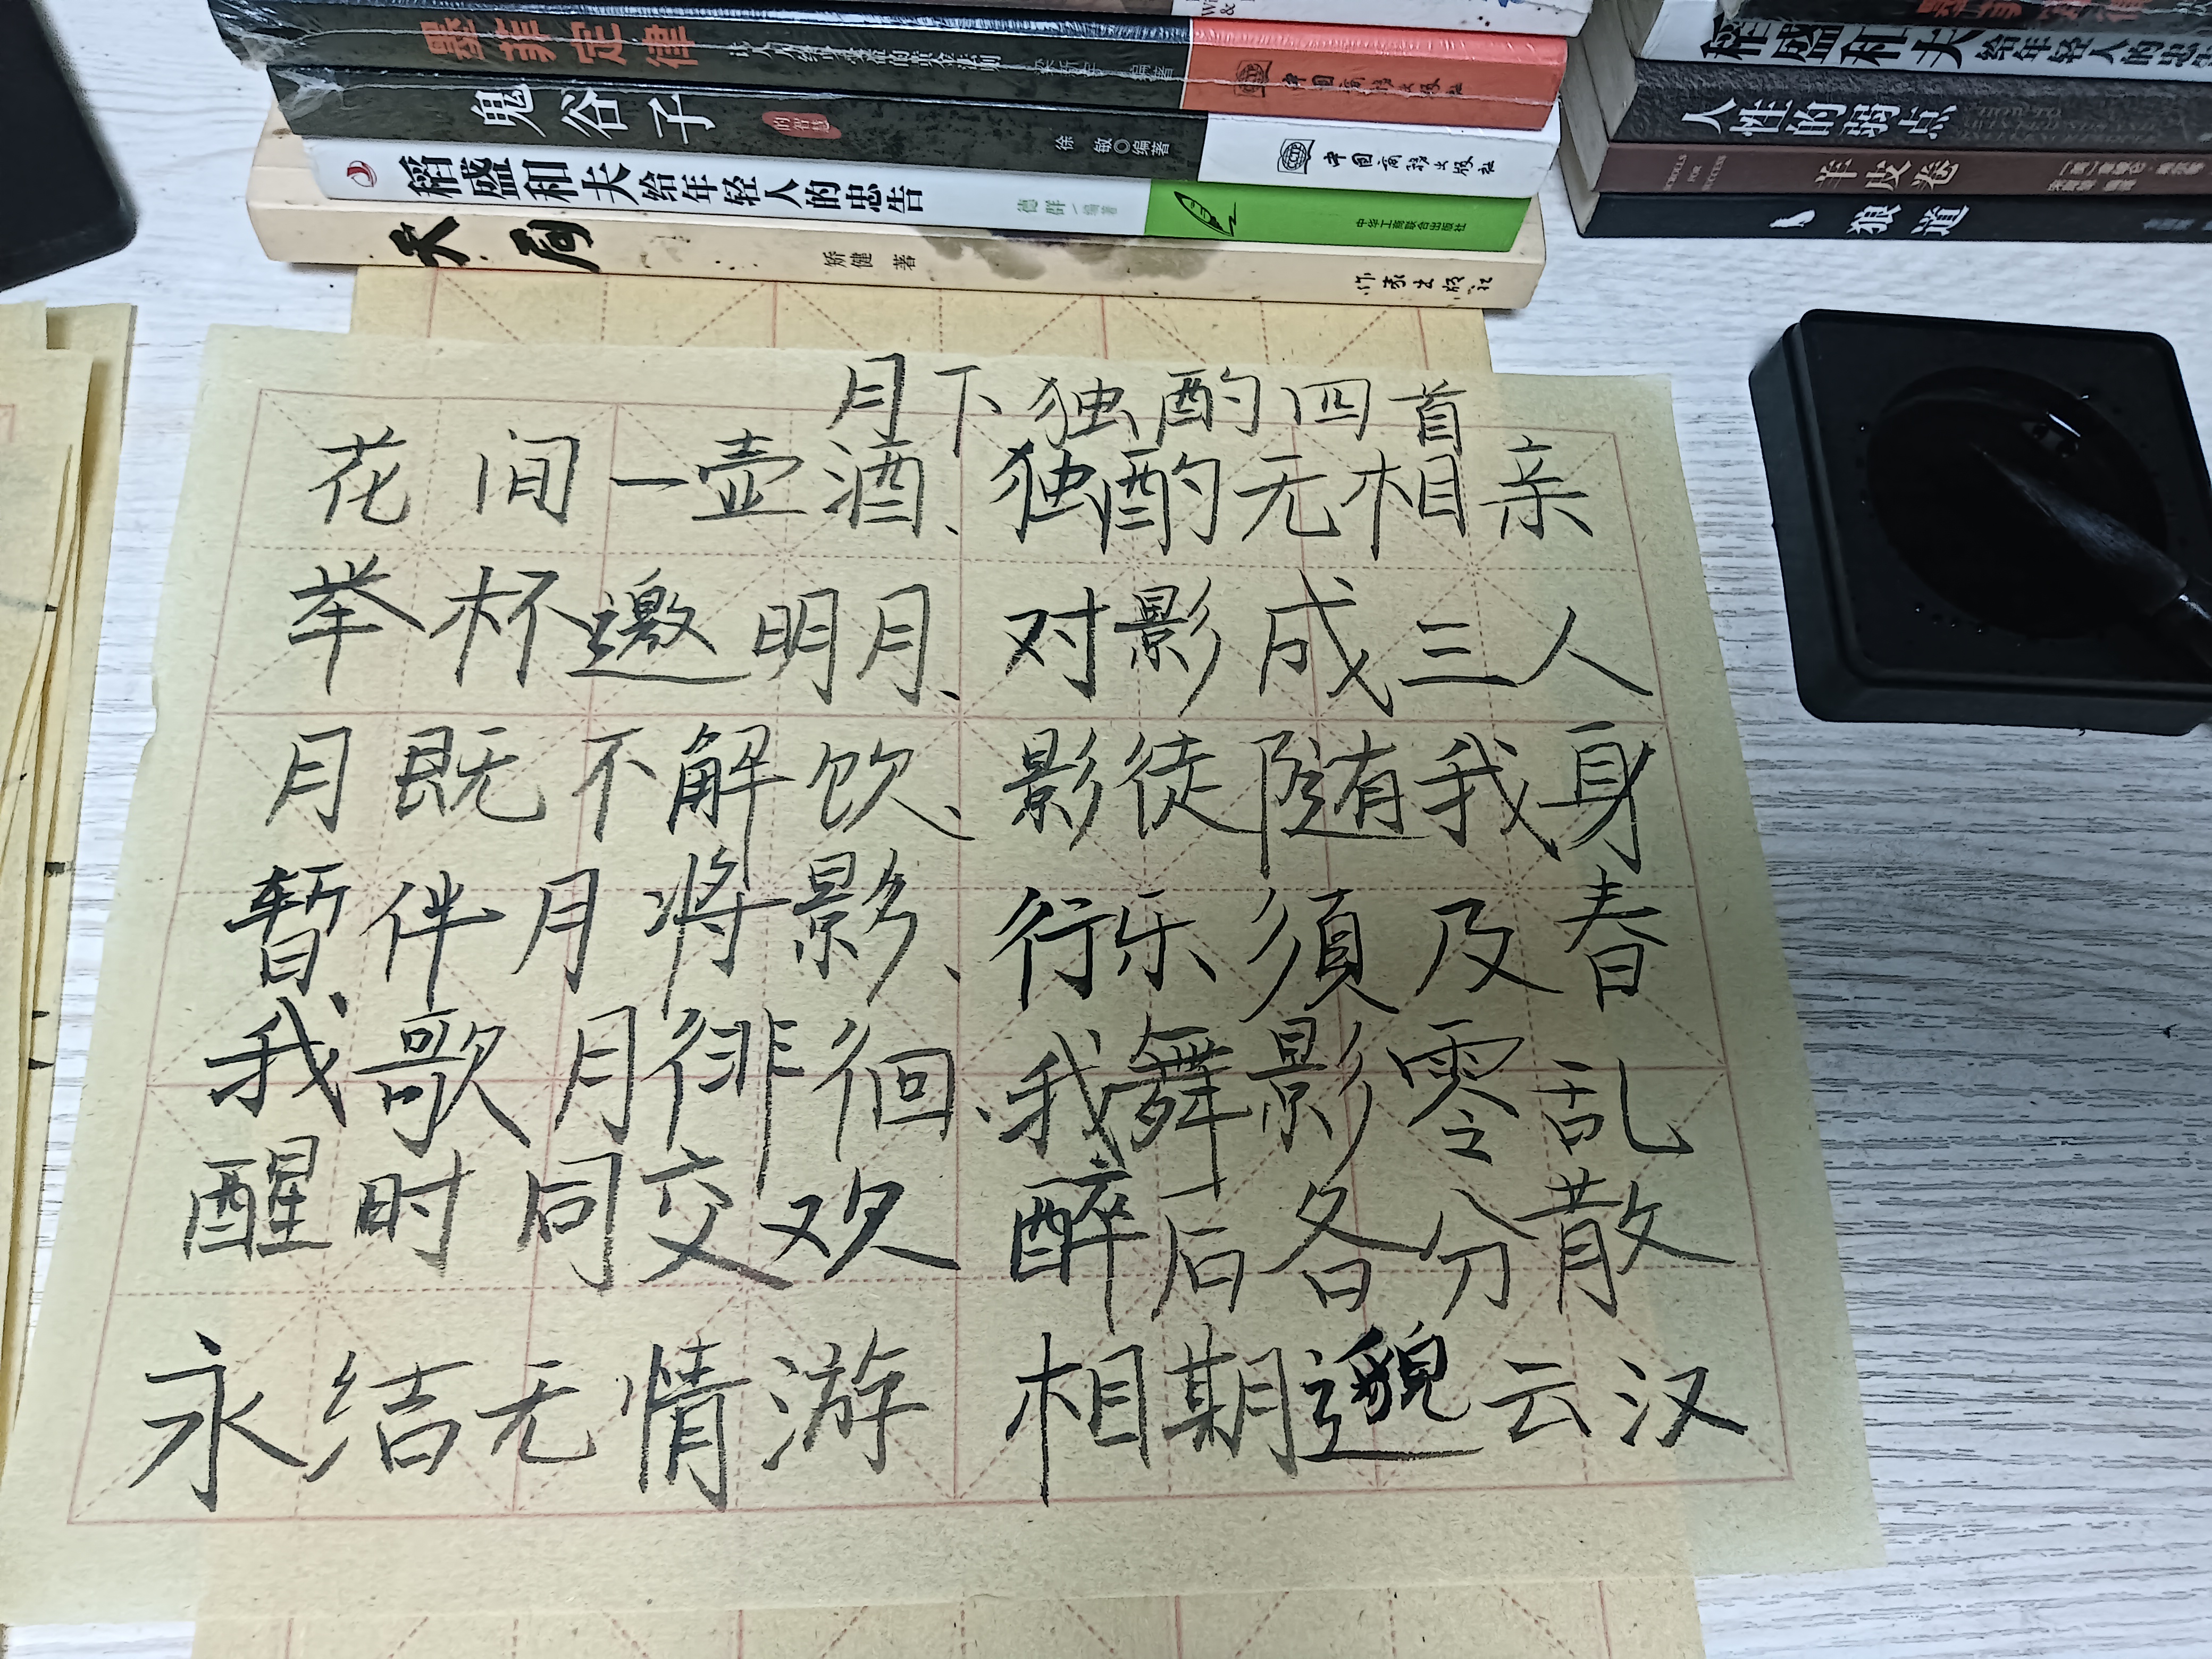 墨菲定律 编著 中国商务出版社
鬼谷子 的智慧 徐敏 编著 中国商务出版社
稻盛和夫给年轻人的忠告 德群 编著 中华工商联合出版社
天局 矫健 著 作家出版社
稻盛和夫给年轻人的忠告
人性的弱点
SCROLLS FOR SUCCESS 羊皮卷
狼道
月下独酌四首
花间一壶酒、独酌无相亲
举杯邀明月、对影成三人
月既不解饮、影徒随我身
暂伴月将影、行乐须及春
我歌月徘徊、我舞影零乱
醒时同交欢 醉后各分散
永结无情游 相期邈云汉